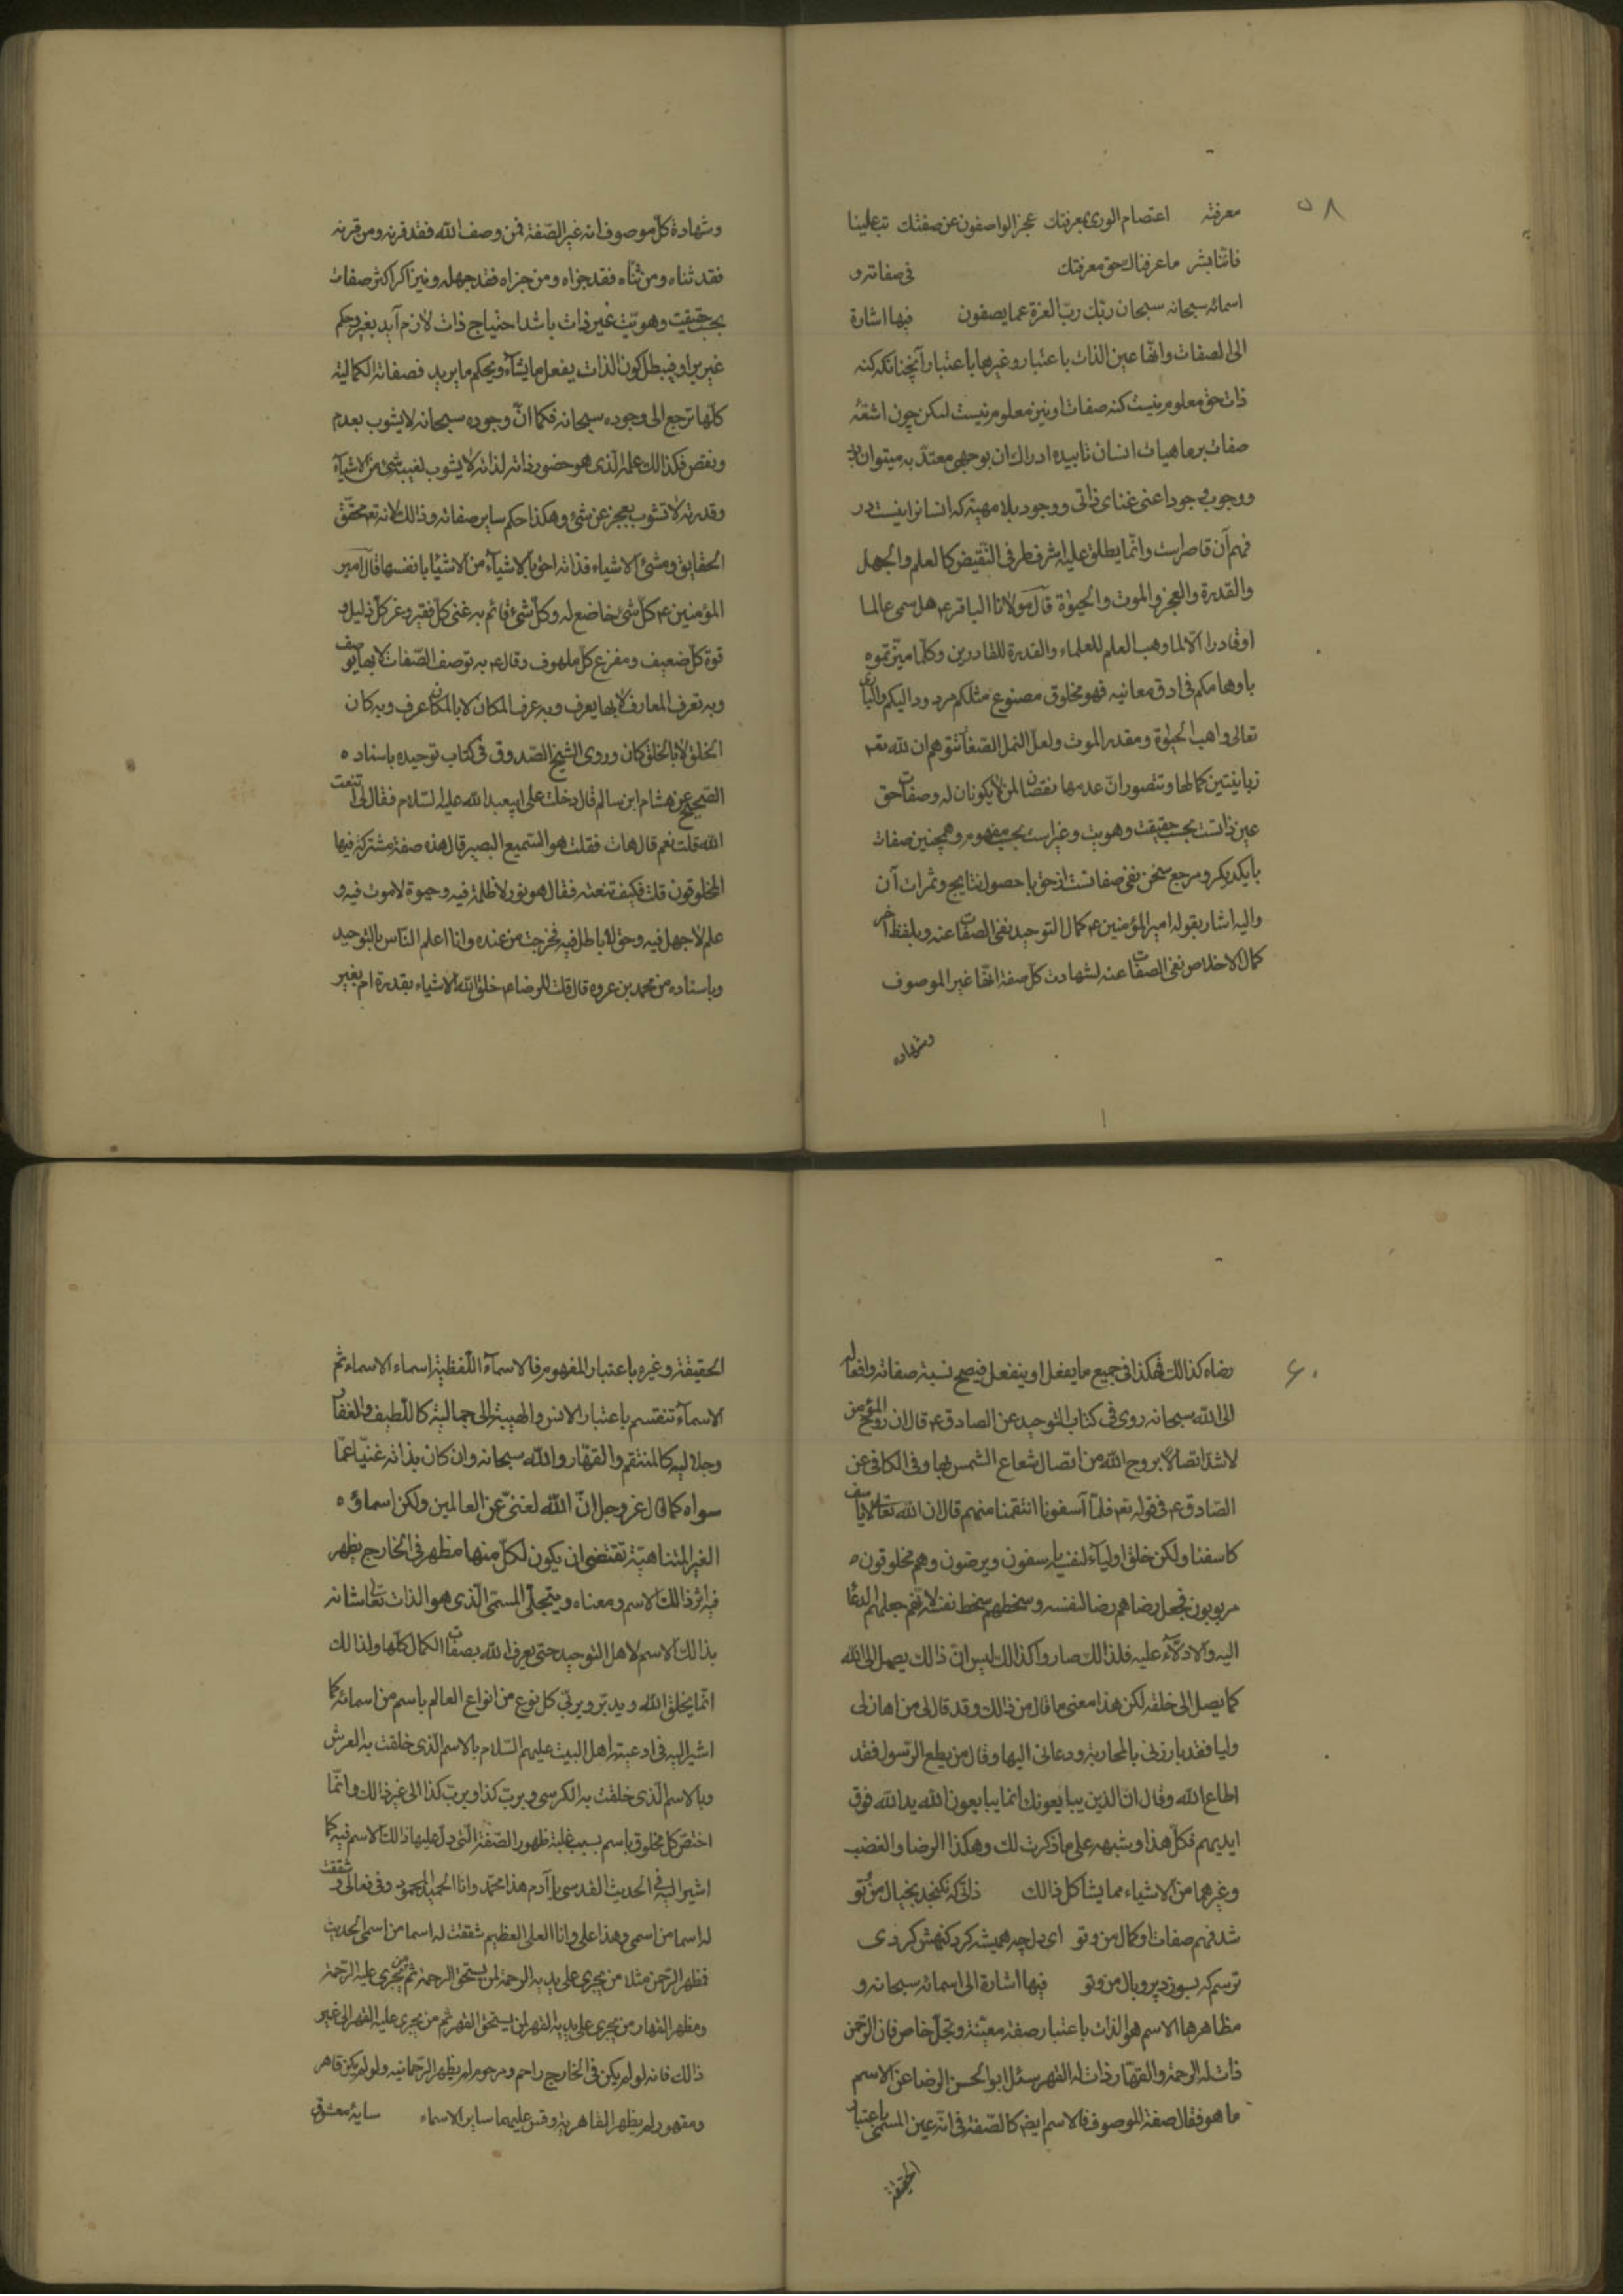 ۵۸
معرفته اعتصام الوری بمعرفتك عجز الواصفون عن صفتك تب علینا
فاننا بشر ما عرفناك حق معرفتك فی صفاته و
اسمائه سبحانه سبحان ربّك ربّ العزة عما یصفون فیها اشارة
الی الصفات وانّها عین الذات باعتبار وغیرها باعتبار آنچنانکه کنه
ذات حق معلوم نیست کنه صفات او نیز معلوم نیست لیکن چون اشعّهٔ
صفات بر ماهیات انسان تابیده ادراك ان بوجهی معتدّ به میتوان
و وجوب وجود اعنی غنای ذاتی و وجود بلا مهیّة که انسانرا نیست در
فهم آن قاصراست وانّما یطلق علیه اشرف طرفی النّقیض کالعلم والجهل
والقدرة والعجز والموت والحیوٰة قال مولانا الباقر ع هل سمی عالما
او قادرا الّا لما وهب العلم للعلماء والقدرة للقادرین وکلّما میّزتموه
باوهامکم فی ادق معانیه فهو مخلوق مصنوع مثلکم مردود الیکم والباری
تعالی واهب الحیٰوة ومقدر الموت ولعلّ النمل الصغار تتوهم ان لله تعـ
زبانیتین کمالها وتتصور انّ عدمها نقصان لمن لا یکونان له وصفات حق
عین ذاتست بحسب حقیقت وهویت وغیراست بحسب مفهوم وهمچنین صفات
بایکدیکر ومرجع سخن نفی صفاتست از حق با حصول نتایج وثمرات آن
والیه اشار بقوله امیر المؤمنین ع کمال التوحید نفی الصفات عنه وبلفظ آخر
کمال الاخلاص نفی الصفات عنه لشهادت کلّ صفة انّها غیر الموصوف
وشهادة
وشهادة کلّ موصوف انه غیر الصّفة فمن وصف الله فقد قرنه ومن قرنه
فقد ثناه ومن ثنّاه فقد جزاه ومن جزاه فقد جهله ونیز اکر اکثر صفات
بحسب حقیقیت وهویّت غیر ذات باشد احتیاج ذات لازم آید بغیر وحکم
غیر براو فیبطل کون الذات یفعل ما یشآء ویحکم ما یرید فصفاته الکمالیة
کلّها ترجع الی وجوده سبحانه فکما انّ وجوده سبحانه لا یشوب بعدم
ونقص فکذالك علمه الّذی هو حضور ذاته لذاته لا یشوب لغیبة شئ من الاشیآء
وقدرته لا تشوب بعجز عن شئ وهکذا حکم سایر صفاته وذالك لانه تعـ محقّق
الحقایق ومشئ الاشیاء فذاته احق بالاشیآء من الاشیٰا بانفسها قال امیر
المؤمنین ع کلّ شئ خاضع له وکلّ شئ قائم به غنی کلّ فقیر وعز کلّ ذلیل و
قوة کلّ ضعیف ومفزع کلّ ملهوف وقال ع به توصف الصّفات لا بها یوصف
وبه تعرف المعارف لا بها یعرف وبه عرف المکان لا بالمکان عرف وبه کان
الخلق لا بالخلق کان وروی الشیخ الصّدوق فی کتاب توحیده باسناده
الصحیح عن هشام ابن سالم قال دخلت علی ابیعبد الله علیه السّلام فقال لی اتنعت
الله قلت نعم قال هات فقلت هو السّمیع البصیر قال هذه صفة مشترکة فیها
المخلوقون قلت فکیف تنعته فقال هو نور لا ظلمة فیه وحیوة لا موت فیه و
علم لا جهل فیه وحق لا باطل فیه فخرجت من عنده وانا اعلم النّاس بالتوحید
وباسناده من محمد بن عروه قال قلت للرضا ع خلق الله الاشیاء بقدرة ام بغیر
۶۰
رضاه کذالك فهکذا فی جمیع ما یفعل او ینفعل فیصح نسبة صفاته وافعاله
الی الله سبحانه روی فی کتاب التوحید عن الصادق ع قال ان روح المؤمن
لاشد اتصالا بروح الله من اتصال شعاع الشمس بها وفی الکافی عن
الصّادق ع فی قوله تعـ فلمّا آسفونا انتقمنا منهم قال ان الله تعالی لا یاسف
کاسفنا ولکن خلق اولیآء لنفسه یاسفون ویرضون وهم مخلوقون
مربوبون فجعل رضاهم رضا لنفسه وسخطهم سخط نفسه لانه تعـ جعلهم الدعاة
الیه والادلّآء علیه فلذالك صاروا کذالك لیس انّ ذالك یصل الی الله
کما یصل الی خلقه لکن هذا معنی ما قال من ذالك وقد قال لی من اهان لی
ولیا فقد بارزنی بالمحاربة ودعانی الیها وقال من یطع الرّسول فقد
اطاع الله وقال انّ الذین یبایعونك انما یبایعون الله ید الله فوق
ایدیهم فکلّ هذا وشبهه علی ما ذکرت لك وهکذا الرضا والغضب
وغیرهما من الاشیاء مما یشاکل ذالك ذاتی که نکنجد بخیال من وتو
شد فهم صفات او کمال من وتو ای دل چه همیشه کرد کنهش کردی
ترسم که بسوزد پر وبال من وتو فیها اشارة الی اسمائه سبحانه و
مظاهرها الاسم هو الذات باعتبار صفة معیّنة وتجلّ خاص فان الرّحمن
ذات له الرحمة والقهّار ذات له القهر سئل ابو الحسن الرضا عن الاسم
ما هو فقال صفة الموصوف فالاسم ایضـ کالصّفة فی انّه عین المسمّی باعتبار
الحقیقة
الحقیقة وغیره باعتبار المفهوم فالاسمآء اللّفظیة اسماء الاسماء ثم
الاسمآء تنقسم باعتبار الانس والهیبة الی جمالیة کاللّطیف والغفار
وجلالیة کالمنتقم والقهّار والله سبحانه وان کان بذاته غنیّا عمّا
سواه کما قال عز وجل انّ الله لغنیّ عن العالمین ولکن اسماؤه
الغیر المتناهیّة تقتضی ان یکون لکلّ منها مظهر فی الخارج یظهر
فیه اثر ذالك الاسم ومعناه ویتجلّی المسمّی الّذی هو الذات تعالی شانه
بذالك الاسم لاهل التوحید حتی یعرف الله بصفات الکمال کلّها ولذالك
انّما یخلق الله ویدبّر ویربّی کلّ نوع من انواع العالم باسم من اسمائه کما
اشیر الیه فی ادعیة اهل البیت علیهم السّلام بالاسم الّذی خلقت به العرش
وبالاسم الّذی خلقت به الکرسی وبربّ کذا وبربّ کذا الی غیر ذالك وانّما
اختصّ کل مخلوق باسم بسبب غلبة ظهور الصّفة الّتی دلّ علیها ذالك الاسم فیه کما
اشیر الیه فی الحدیث القدسی یا آدم هذا محمّد وانا الحمید المحمود وفی فعالی شققت
له اسما من اسمی وهذا علی وانا العلی العظیم شققت له اسما من اسمی الحدیث
فظهر الرّحمن مثلا من یجری علی یدیه الرحمة لمن یستحق الرحمة ثم من یجری علیه الرّحمة
ومظهر القهار من یجری علی یدیه القهر لمن یستحق القهر ثم من یجری علیه القهر الی غیر
ذالك فانه لو لم یکن فی الخارج راحم ومرحوم لم یظهر الرّحمانیه ولو لم یکن قاهر
ومقهور لم یظهر القاهریة وقس علیهما سایر الاسماء سایهٔ معشوق